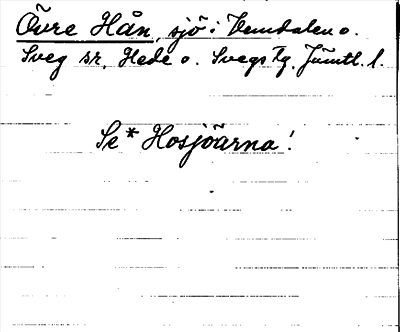 Övre Hån, sjö i Vemdalen o.
Sveg sr, Hede o. Svegs tg, Jämtl. l.
Se * Hosjöarna!